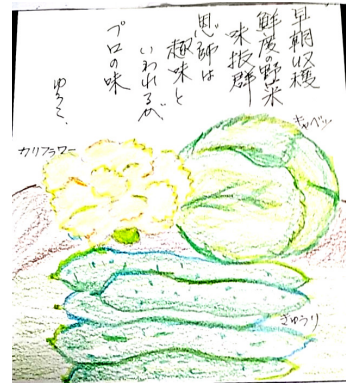 早朝収穫
鮮度の野菜
味抜群
恩師は
趣味と
いわれるが
プロの味
ゆうこ、
キャベツ
カリフラワー
きゅうり